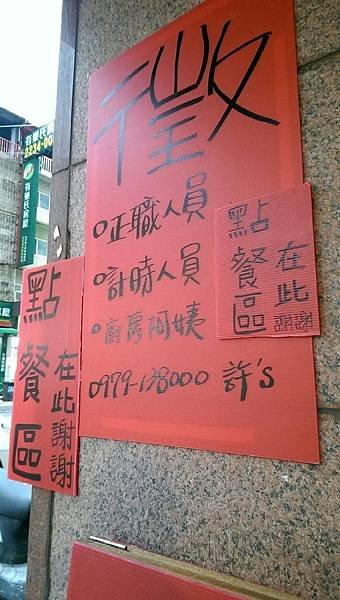 徵
○正職人員
○計時人員
•廚房阿姨
0979-138000 許's
點餐區
在此謝謝
點餐區
在此謝謝
有巢氏房屋